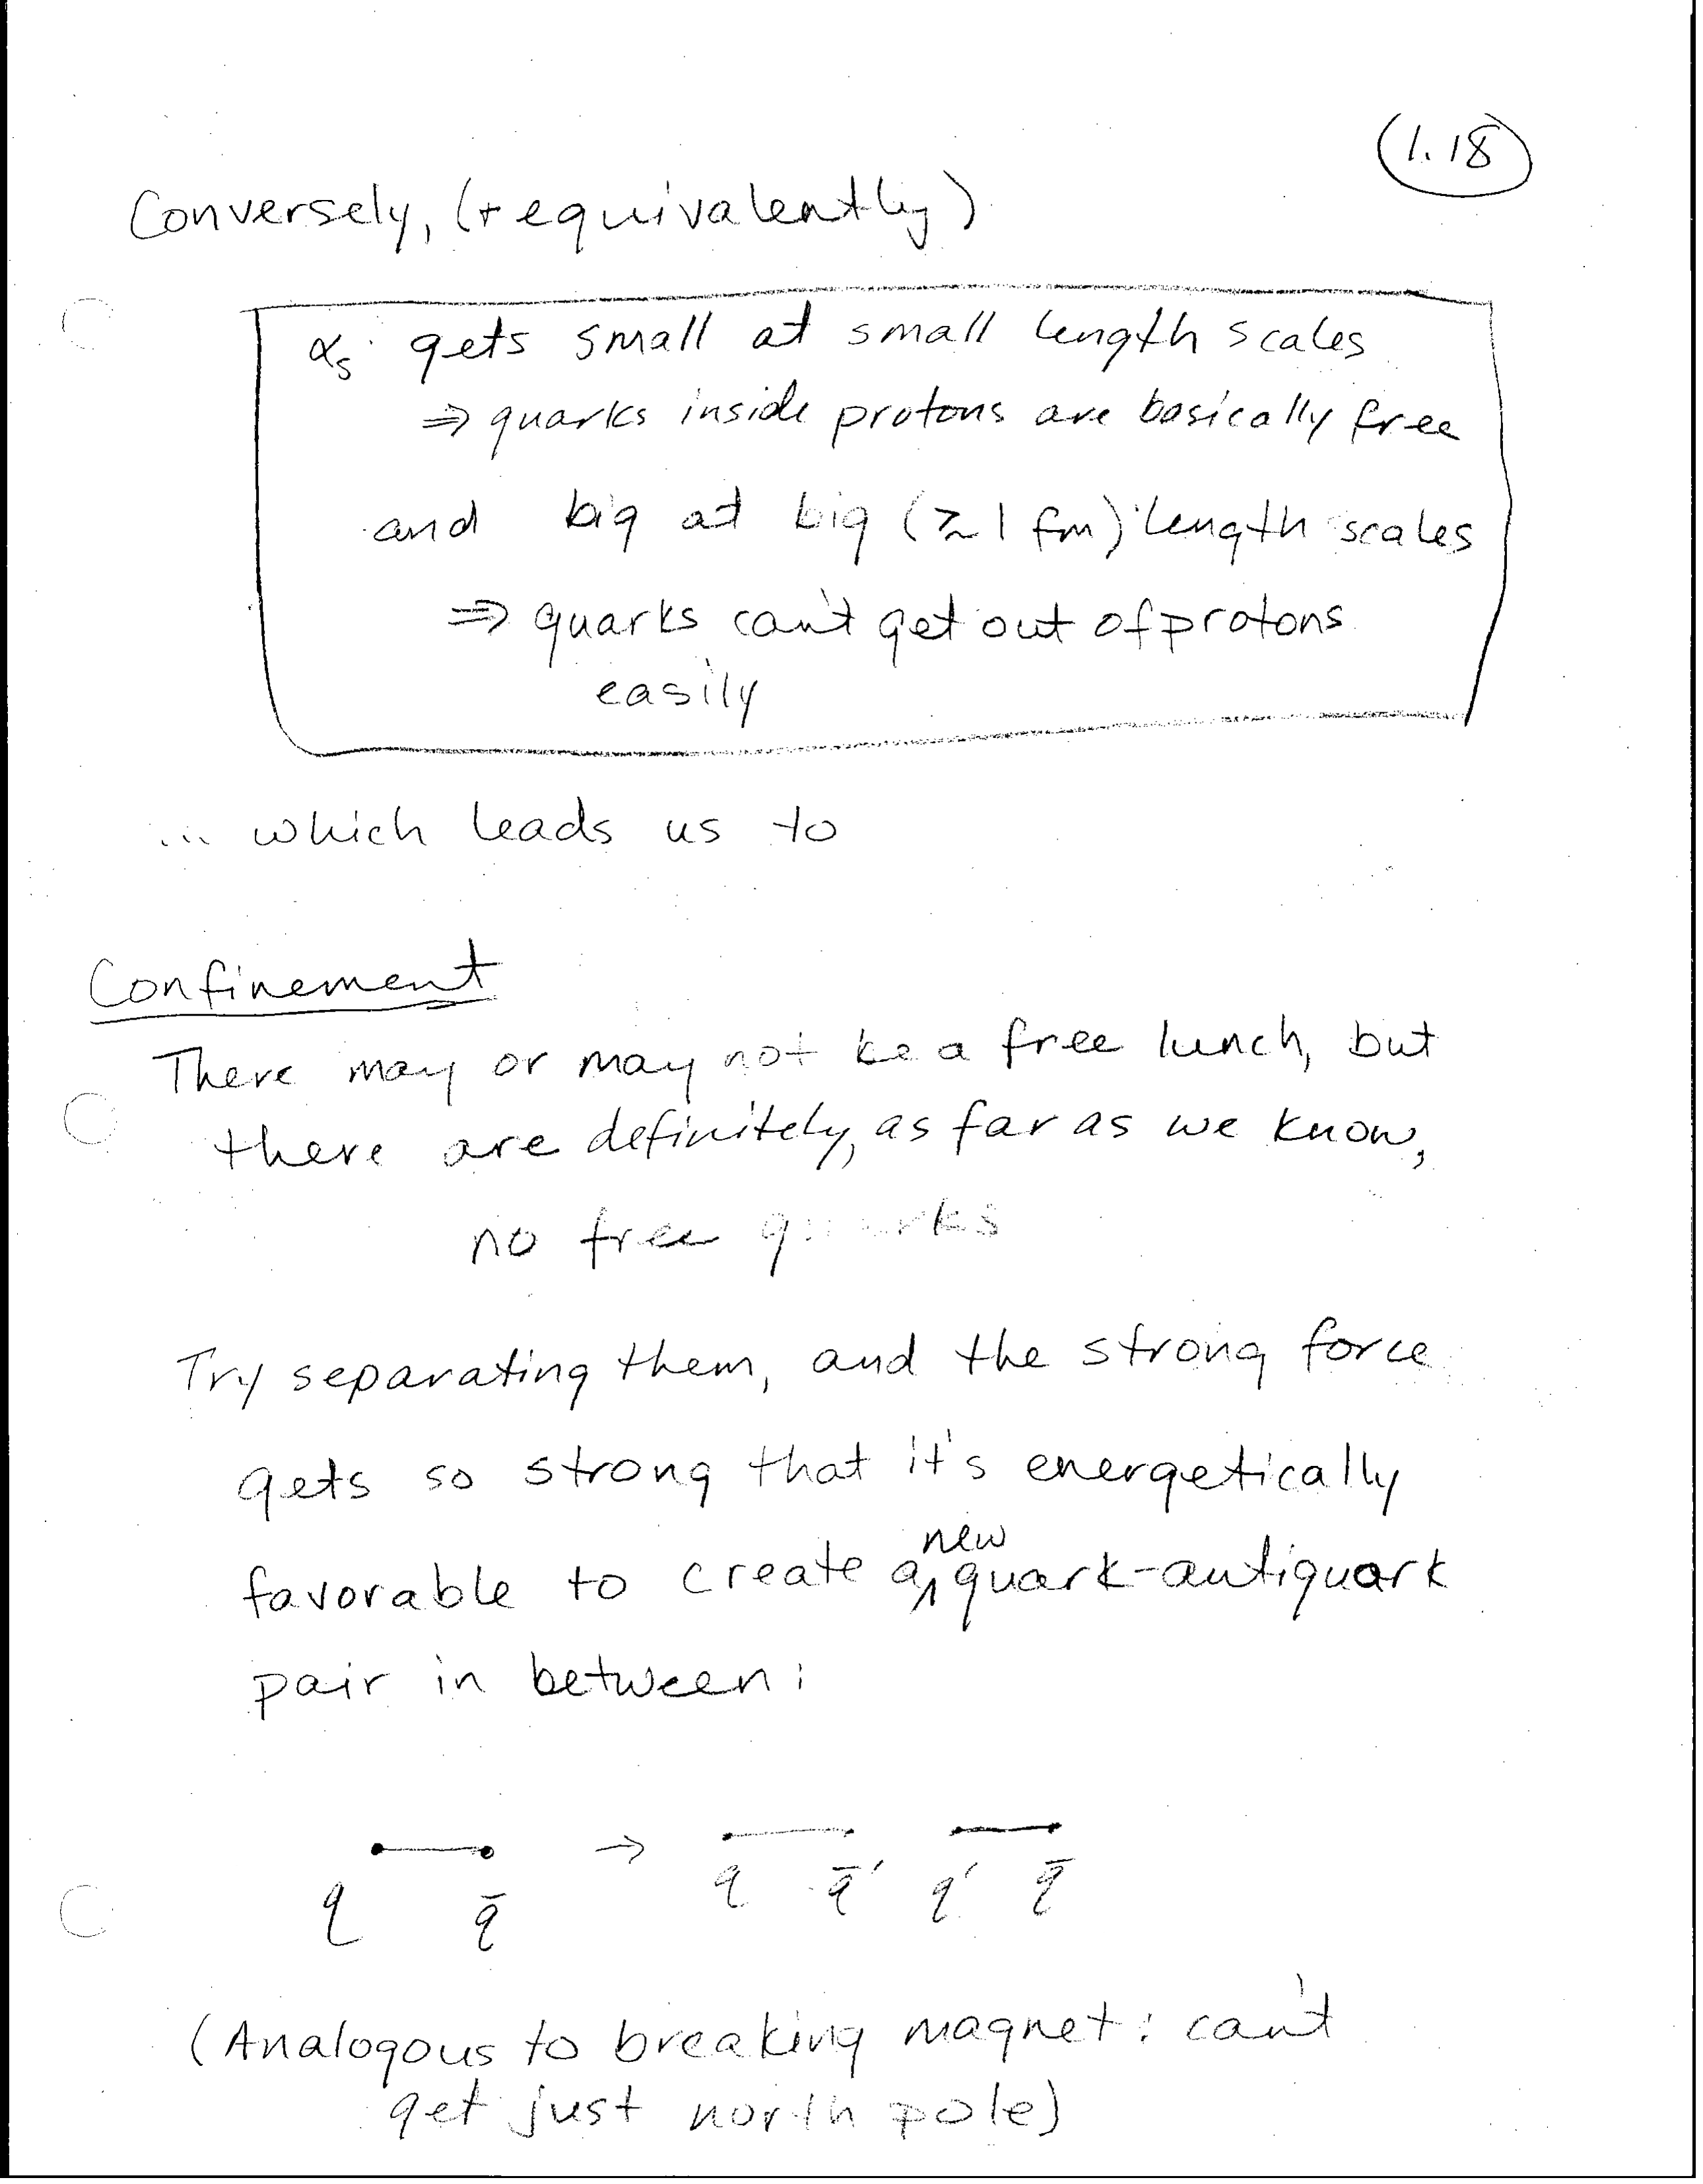 1.18
Conversely, (+ equivalently)
αs gets small at small length scales
⇒ quarks inside protons are basically free
and big at big (≳ 1 fm) length scales
⇒ quarks can't get out of protons
easily
... which leads us to
Confinement
There may or may not be a free lunch, but
there are definitely, as far as we know,
no free quarks
Try separating them, and the strong force
gets so strong that it's energetically
new
favorable to create a ʌ quark-antiquark
pair in between:
→
q q̄ q q̄′ q′ q̄
(Analogous to breaking magnet: can't
get just north pole)